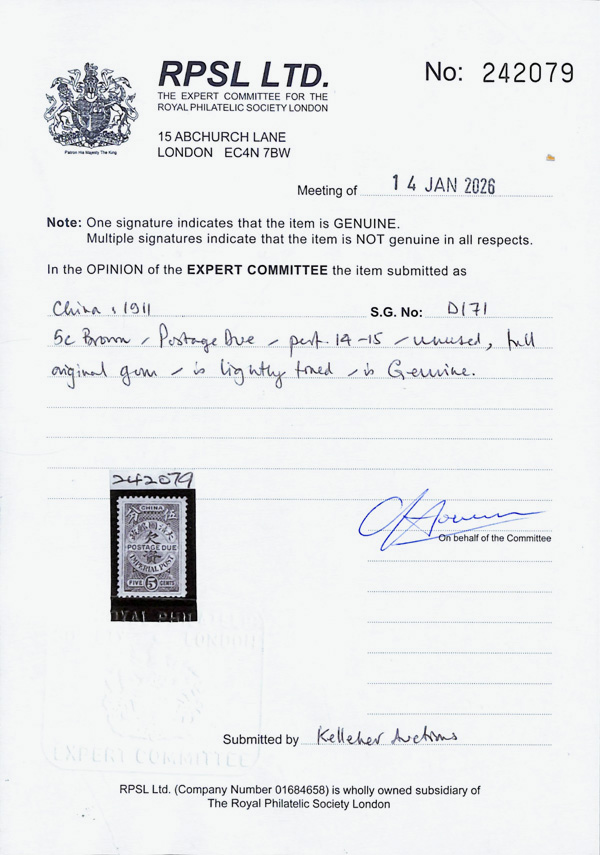 RPSL LTD.
THE EXPERT COMMITTEE FOR THE
ROYAL PHILATELIC SOCIETY LONDON
No: 242079
Patron His Majesty The King
15 ABCHURCH LANE
LONDON EC4N 7BW
Meeting of 14 JAN 2026
Note: One signature indicates that the item is GENUINE.
Multiple signatures indicate that the item is NOT genuine in all respects.
In the OPINION of the EXPERT COMMITTEE the item submitted as
China, 1911 S.G. No: D171
5c Brown / Postage Due / perf. 14-15 / unused, full
original gum / is lightly toned / is Genuine.
242079
CHINA
伍 分
欠
POSTAGE DUE
資
IMPERIAL POST
FIVE 5 CENTS
On behalf of the Committee
ROYAL PHI
LONDON
EXPERT COMMITTEE
Submitted by Kelleher Auctions
RPSL Ltd. (Company Number 01684658) is wholly owned subsidiary of
The Royal Philatelic Society London